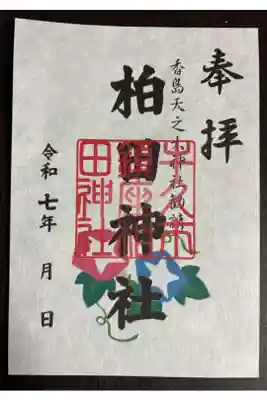 奉拝
香島天之大神社勧請
柏田神社
令和七年　月　日
田神社